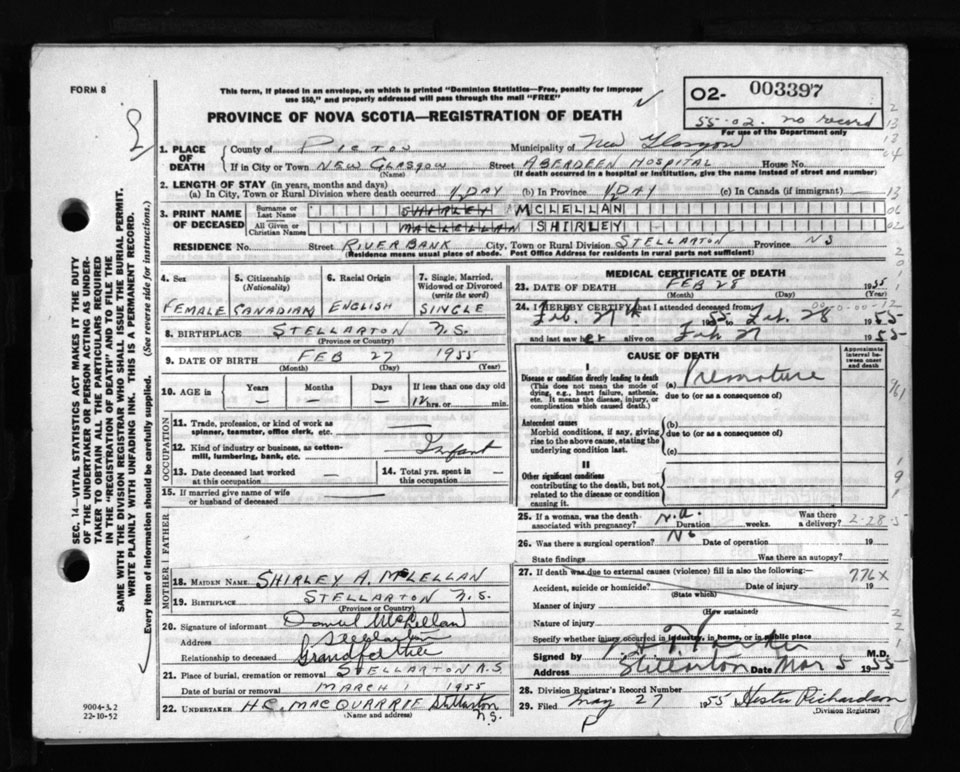 FORM 8
This form, if placed in an envelope, on which is printed "Dominion Statistics—Free, penalty for improper
use $50," and properly addressed will pass through the mail "FREE"
PROVINCE OF NOVA SCOTIA—REGISTRATION OF DEATH
O2- 003397
55-02. no record
For use of the Department only
1. PLACE OF DEATH
County of Pictou Municipality of New Glasgow
If in City or Town NEW GLASGOW Street ABERDEEN HOSPITAL House No.
(Name) (If death occurred in a hospital or institution, give the name instead of street and number)
2. LENGTH OF STAY (in years, months and days)
(a) In City, Town or Rural Division where death occurred 1/2 DAY (b) In Province 1/2 DAY (c) In Canada (if immigrant) —
3. PRINT NAME OF DECEASED
Surname or Last Name SHIRLEY MCLELLAN
All Given or Christian Names MACLELLAN SHIRLEY
RESIDENCE No. Street RIVER BANK City, Town or Rural Division STELLARTON Province NS
(Residence means usual place of abode. Post Office Address for residents in rural parts not sufficient)
4. Sex
FEMALE
5. Citizenship (Nationality)
CANADIAN
6. Racial Origin
ENGLISH
7. Single, Married, Widowed or Divorced (write the word)
SINGLE
8. BIRTHPLACE STELLARTON N.S.
(Province or Country)
9. DATE OF BIRTH FEB 27 1955
(Month) (Day) (Year)
10. AGE in Years Months Days If less than one day old
— — — 12 hrs. or min.
OCCUPATION
11. Trade, profession, or kind of work as spinner, teamster, office clerk, etc. —
12. Kind of industry or business, as cotton-mill, lumbering, bank, etc. Infant
13. Date deceased last worked at this occupation —
14. Total yrs. spent in this occupation —
15. If married give name of wife or husband of deceased —
FATHER
MOTHER
18. MAIDEN NAME SHIRLEY A. MCLELLAN
19. BIRTHPLACE STELLARTON N.S.
(Province or Country)
20. Signature of informant Daniel McLellan
Address Stellarton
Relationship to deceased Grandfather
21. Place of burial, cremation or removal STELLARTON N.S
Date of burial or removal MARCH 1 1955
22. UNDERTAKER H.C. MACQUARRIE Stellarton N.S.
(Name and address)
MEDICAL CERTIFICATE OF DEATH
23. DATE OF DEATH FEB 28 1955
(Month) (Day) (Year)
24. I HEREBY CERTIFY that I attended deceased from
Feb. 27th 1955 Feb. 28 1955
and last saw her alive on Feb 27 1955
CAUSE OF DEATH
Approximate interval between onset and death
I
Disease or condition directly leading to death
(This does not mean the mode of dying, e.g., heart failure, asthenia, etc. It means the disease, injury, or complication which caused death.)
(a) Premature
due to (or as a consequence of)
Antecedent causes
Morbid conditions, if any, giving rise to the above cause, stating the underlying condition last.
(b)
due to (or as a consequence of)
(c)
II
Other significant conditions
contributing to the death, but not related to the disease or condition causing it.
25. If a woman, was the death associated with pregnancy? N.A. Duration weeks. Was there a delivery? 2-28-5
26. Was there a surgical operation? No Date of operation 19
State findings Was there an autopsy?
27. If death was due to external causes (violence) fill in also the following:— 776X
Accident, suicide or homicide? Date of injury 19
(State which)
Manner of injury
(How sustained)
Nature of injury
Specify whether injury occurred in industry, in home, or in public place
Signed by M.D.
Address Stellarton Date Mar 5 1955
28. Division Registrar's Record Number
29. Filed May 27 1955 Hester Richardson
(Division Registrar)
SEC. 14—VITAL STATISTICS ACT MAKES IT THE DUTY
OF THE UNDERTAKER OR PERSON ACTING AS UNDER-
TAKER TO OBTAIN ALL THE PARTICULARS REQUIRED
IN THE "REGISTRATION OF DEATH" AND TO FILE THE
SAME WITH THE DIVISION REGISTRAR WHO SHALL ISSUE THE BURIAL PERMIT.
WRITE PLAINLY WITH UNFADING INK. THIS IS A PERMANENT RECORD.
Every item of information should be carefully supplied. (See reverse side for instructions.)
9004-3.2
22-10-52